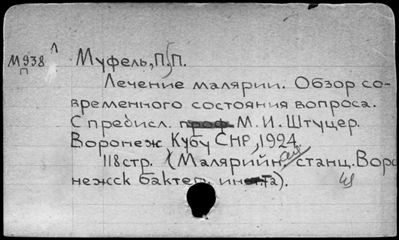 М938 Л Муфель, П. П.
П
Лечение малярии. Обзор со-
временного состояния вопроса.
С предисл. проф. М. И. Штуцер.
Воронеж Кубу СНР, 1924
118 стр. (Малярийн. станц. Воро
нежск бактер. ин-та).